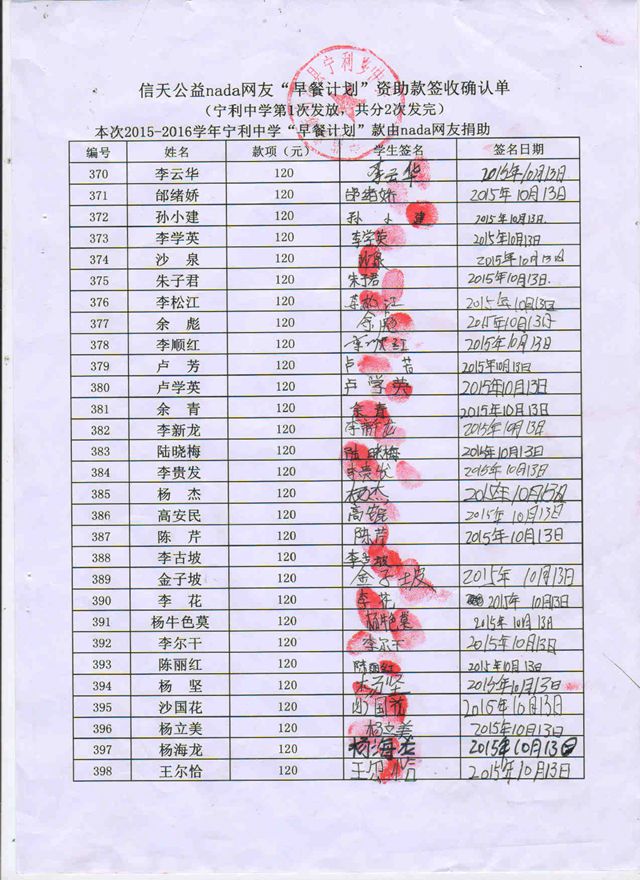 信天公益nada网友“早餐计划”资助款签收确认单
（宁利中学第1次发放，共分2次发完）
本次2015-2016学年宁利中学“早餐计划”款由nada网友捐助
编号 姓名 款项（元） 学生签名 签名日期
370 李云华 120 李云华 2015年10月13日
371 邰绪娇 120 邰绪娇 2015年10月13日
372 孙小建 120 孙小建 2015年10月13日.
373 李学英 120 李学英 2015年10月13日
374 沙泉 120 沙泉 2015年10月13日
375 朱子君 120 朱子君 2015年10月13日.
376 李松江 120 李松江 2015年10月13日
377 余彪 120 余彪 2015年10月13日
378 李顺红 120 2015年10月13日
379 卢芳 120 卢 2015年10月13日
380 卢学英 120 卢学英 2015年10月13日
381 余青 120 余青 2015年10月13日
382 李新龙 120 李新龙 2015年10月13日
383 陆晓梅 120 陆晓梅 2015年10月13日
384 李贵发 120 李贵发 2015年10月13日
385 杨杰 120 杨杰 2015年10月13日
386 高安民 120 高安民 2015年10月13日
387 陈芹 120 陈芹 2015年10月13日
388 李古坡 120 李古坡
389 金子坡 120 金子坡 2015年10月13日
390 李花 120 李花 2015年10月13日
391 杨牛色莫 120 杨牛色莫 2015年10月13日
392 李尔干 120 李尔干 2015年10月13日
393 陈丽红 120 陈丽红 2015年10月13日
394 杨坚 120 杨坚 2015年10月13日
395 沙国花 120 沙国花 2015年10月13日
396 杨立美 120 杨立美 2015年10月13日
397 杨海龙 120 杨海龙 2015年10月13日
398 王尔恰 120 王尔恰 2015年10月13日